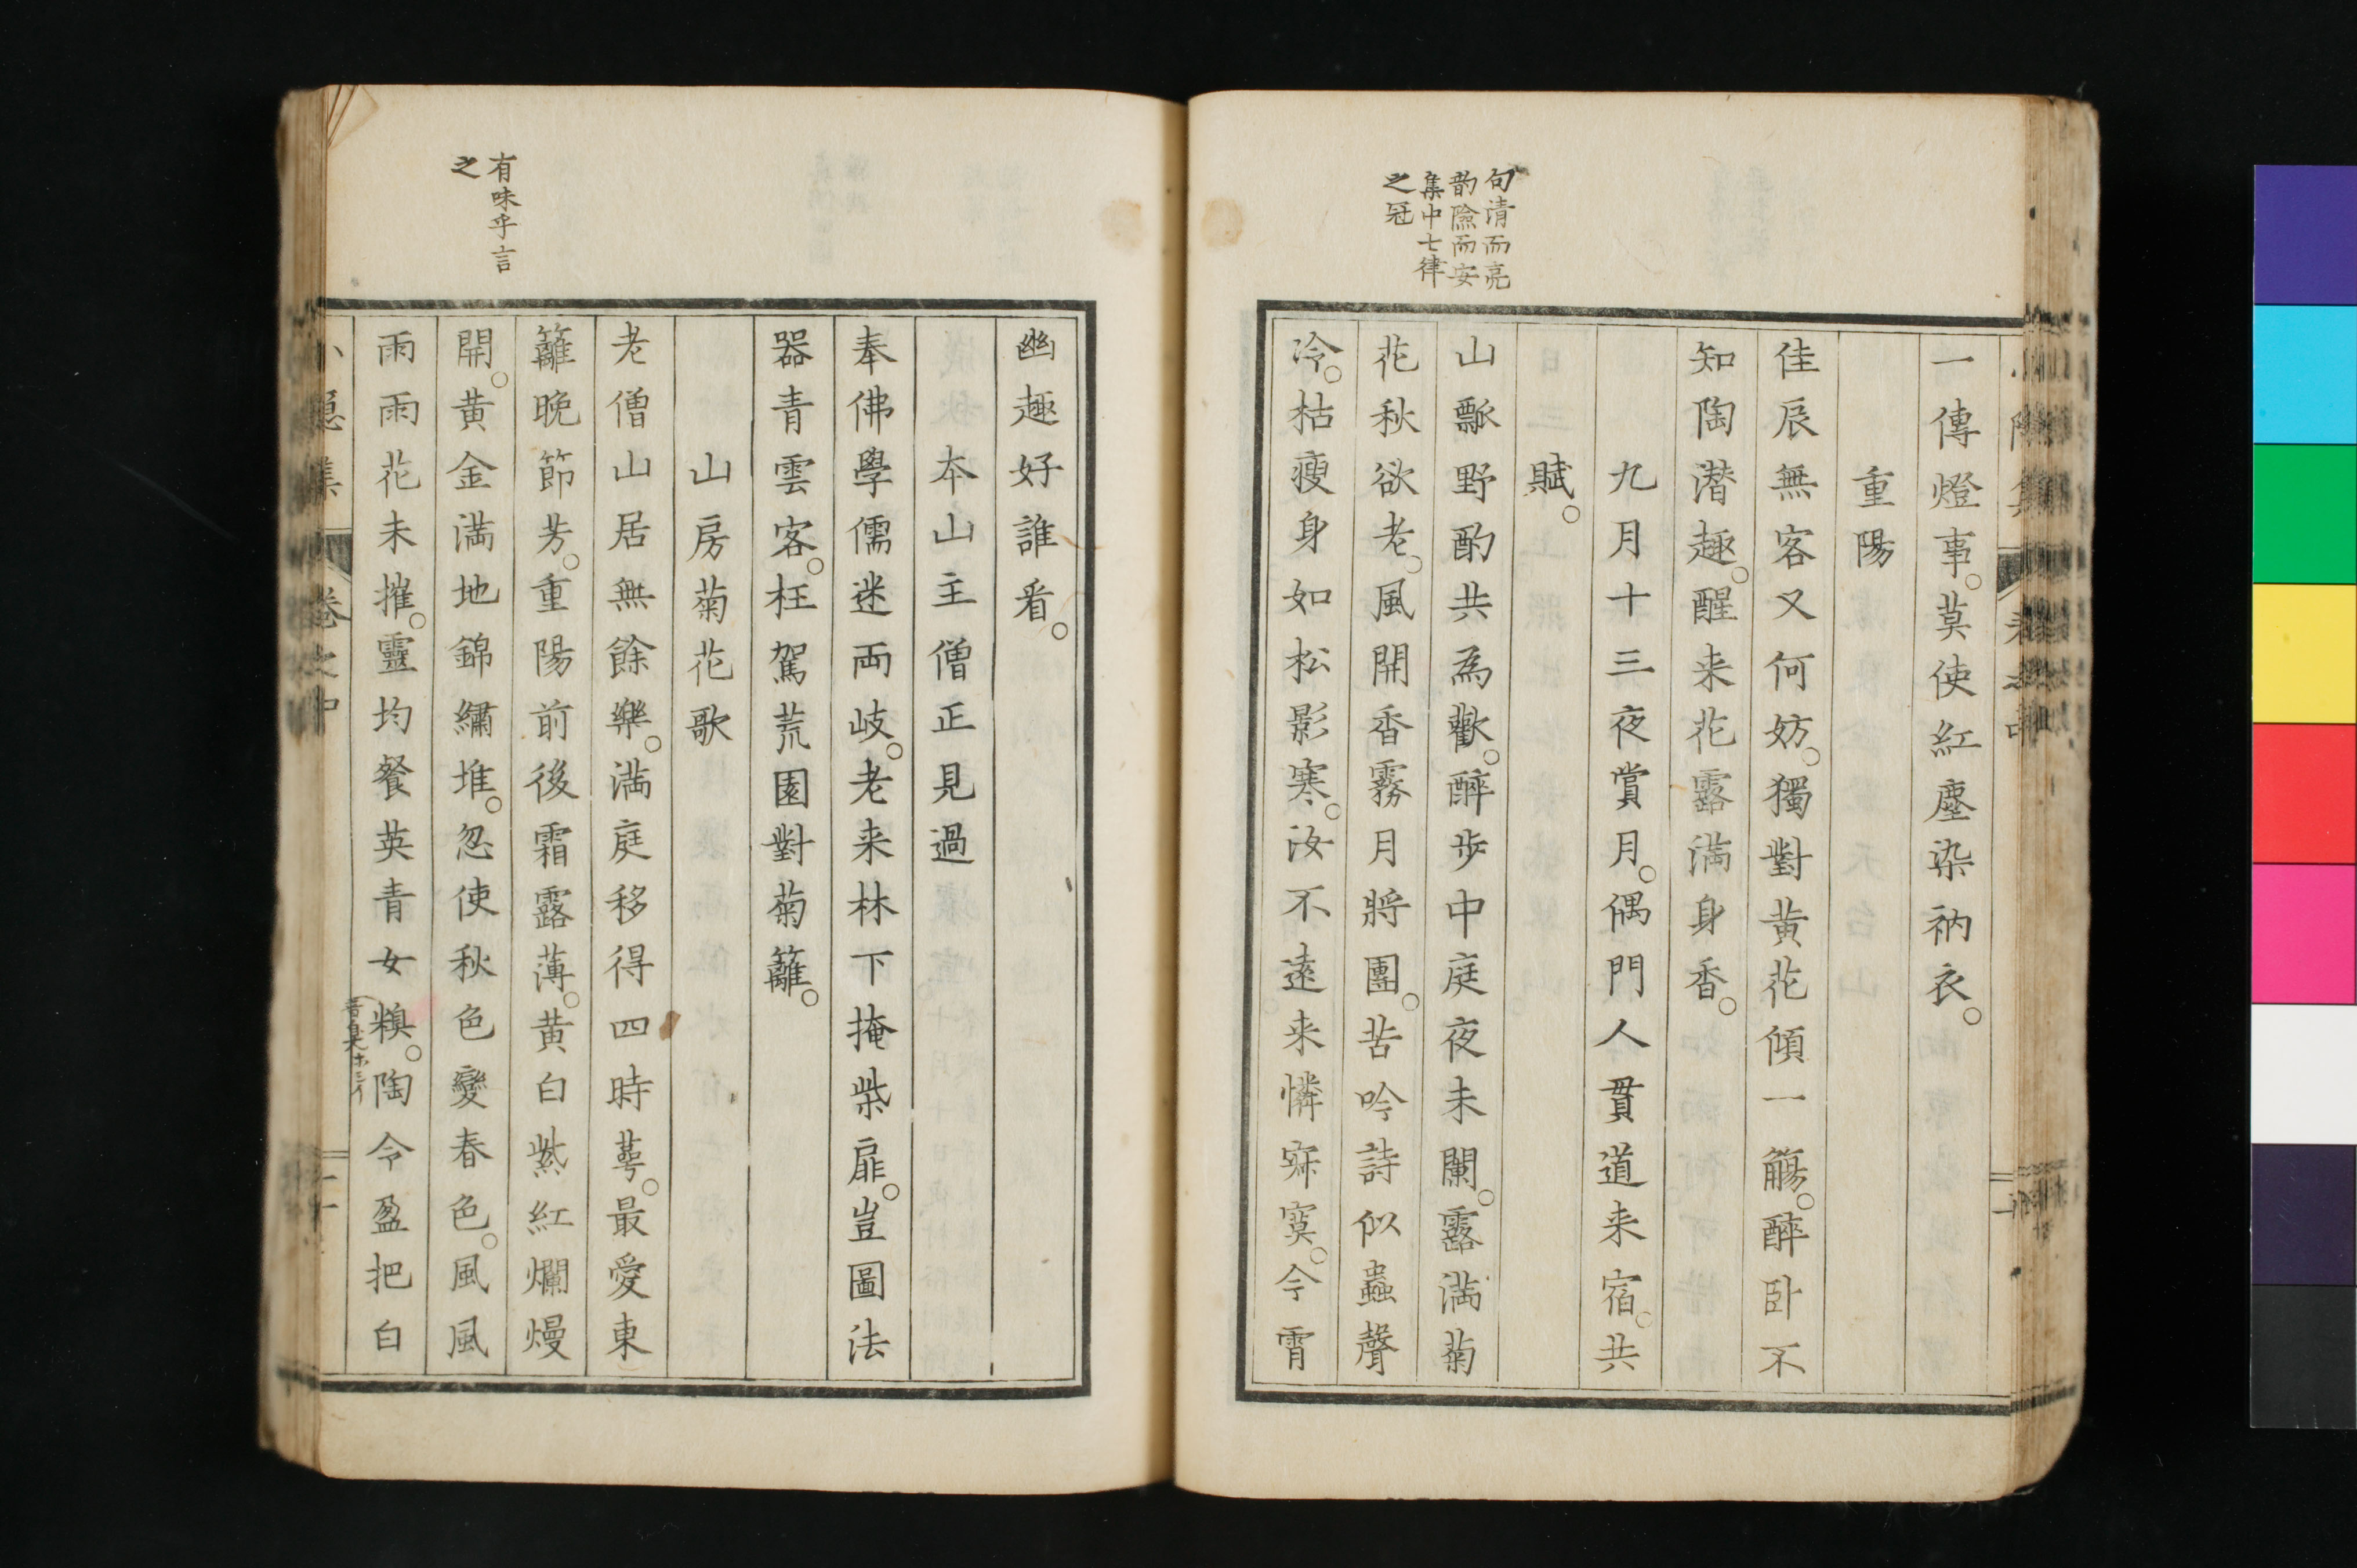 句清而亮
韵險而安
集中七律
之冠
一傳燈事。莫使紅塵染衲衣。
重陽
佳辰無客又何妨。獨對黃花傾一觴。醉卧不
知陶潛趣。醒来花露滿身香。
九月十三夜賞月。偶門人貫道来宿。共
賦。
山瓢野酌共為歡。醉步中庭夜未闌。露滿菊
花秋欲老。風開香霧月將團。苦吟詩似蟲聲
冷。枯瘦身如松影寒。汝不遠来憐寂寞。今宵
有味乎言
之
幽趣好誰看。
本山主僧正見過
奉佛學儒迷両岐。老来林下掩柴扉。豈圖法
器青雲客。枉駕荒園對菊籬。
山房菊花歌
老僧山居無餘樂。満庭移得四時蕚。最愛東
籬晚節芳。重陽前後霜露薄。黄白紫紅爛熳
開。黄金満地錦繡堆。忽使秋色變春色。風風
雨雨花未摧。靈均餐英青女糗。陶令盈把白
小隱集
卷之中